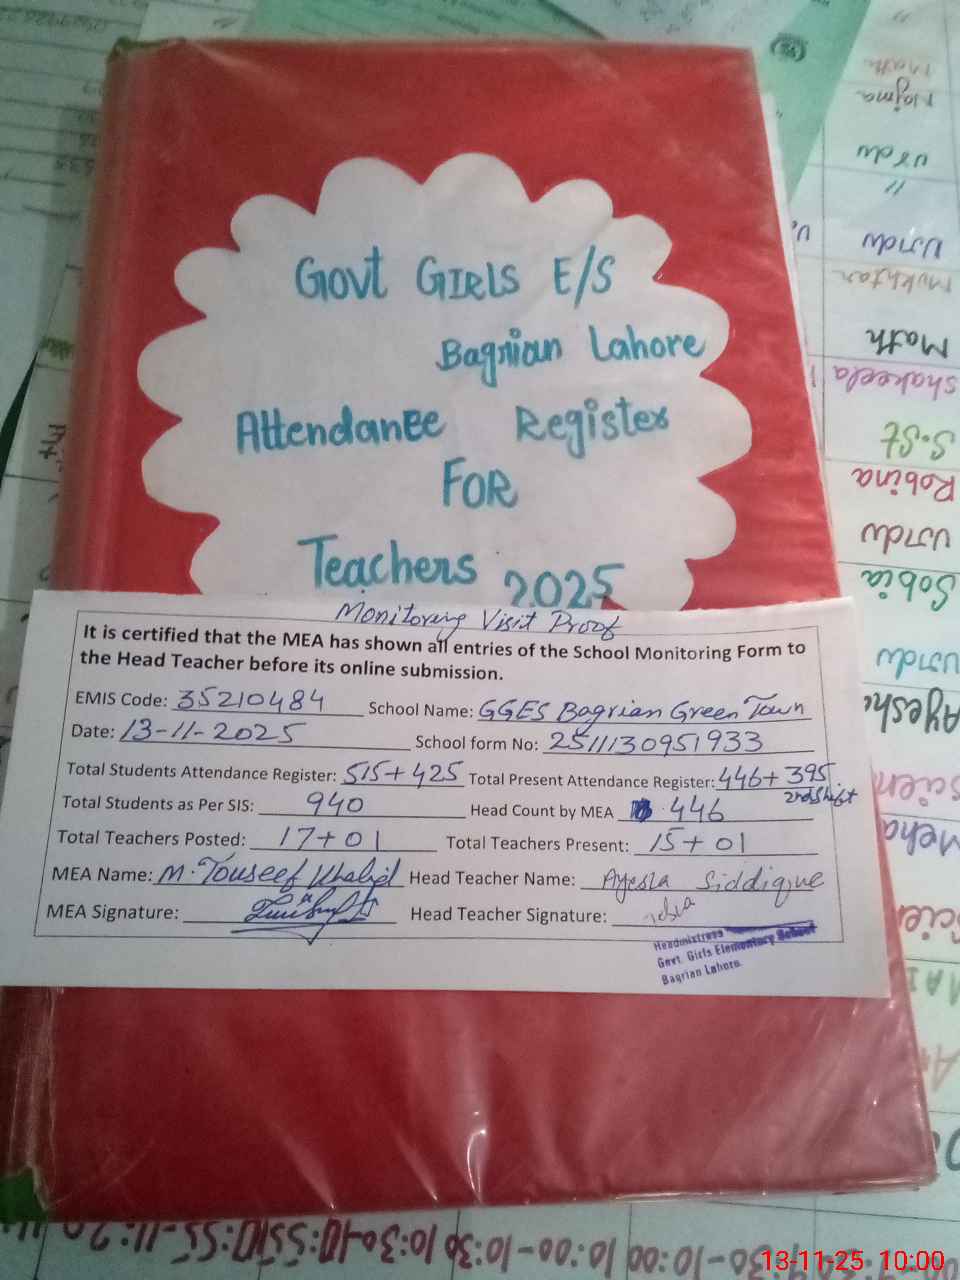 Govt GIRLS E/S
Bagrian Lahore
Attendance Register
FOR
Teachers 2025
Monitoring Visit Proof
It is certified that the MEA has shown all entries of the School Monitoring Form to
the Head Teacher before its online submission.
EMIS Code: 35210484 School Name: GGES Bagrian Green Town
Date: 13-11-2025 School form No: 2511130951933
Total Students Attendance Register: 515+425 Total Present Attendance Register: 446+395
2nd Shift
Total Students as Per SIS: 940 Head Count by MEA 446
Total Teachers Posted: 17+01 Total Teachers Present: 15+01
MEA Name: M. Touseef Khalid Head Teacher Name: Ayesha Siddique
MEA Signature: Head Teacher Signature:
Headmistress
Govt. Girls Elementary School
Bagrian Lahore.
Math
Najma
urdu
"
urdu
Mukhtar
Math
Shakeela
S.St
Robina
urdu
Sobia
urdu
13-11-25 10:00